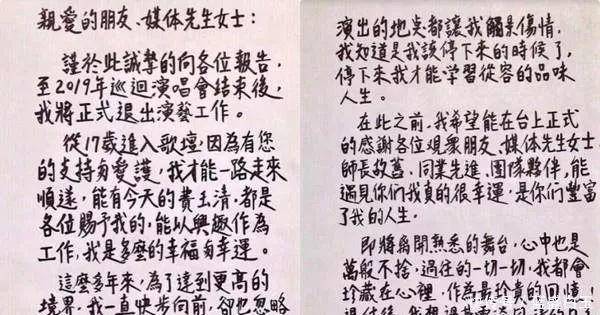 親愛的朋友、媒体先生女士：
謹於此誠摯的向各位報告，
至2019年巡迴演唱會結束後，
我將正式退出演藝工作。
從17歲進入歌壇，因為有您
的支持匃愛護，我才能一路走來
順遂，能有今天的費玉清，都是
各位賜予我的，能以興趣作為
工作，我是多麼的幸福匃幸運。
這麼多年來，為了達到更高的
境界，我一直快步向前，卻也忽略
演出的地点都讓我觸景傷情，
我知道是我該停下來的時候了，
停下來我才能學習從容的品味
人生。
在此之前，我希望能在台上正式
的感謝各位觀衆朋友、媒体先生女士、
師長故舊、同業先進、團隊夥伴，能
遇見你們我真的很幸運，是你們豐富
了我的人生。
即將離開熟悉的舞台，心中也是
萬般不捨，過往的一切一切，我都會
珍藏在心裡，作為最珍貴的回憶！